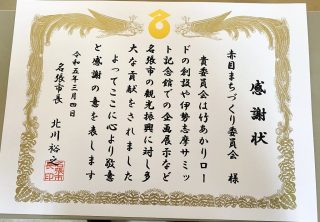 感謝状
赤目まちづくり委員会 様
貴委員会は竹あかりロー
ドの創設や伊勢志摩サミッ
ト記念館での企画展示など
名張市の観光振興に対し多
大な貢献をされました
よってここに心より敬意
と感謝の意を表します
令和五年三月四日
名張市長 北川裕之